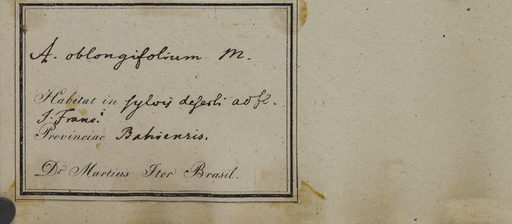 A. oblongifolium M.
Habitat in sylvis deserti ad fl.
S. Franc.
Provinciae Bahiensis.
Dr. Martius Iter Brasil.